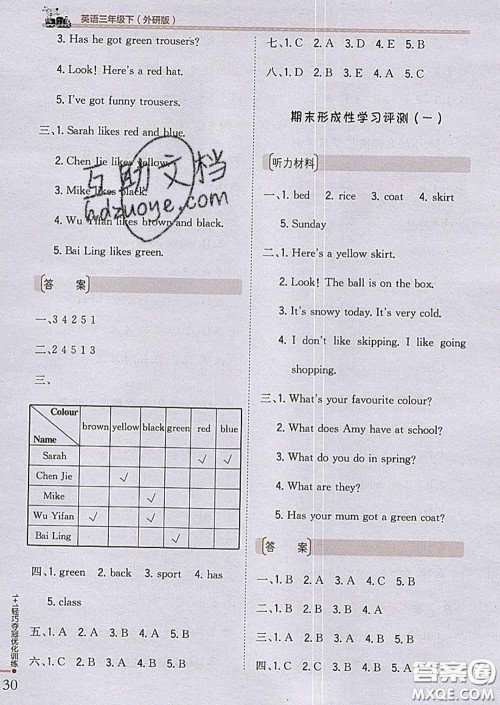 英语三年级下（外研版）
3. Has he got green trousers?
4. Look! Here's a red hat.
5. I've got funny trousers.
三、1. Sarah likes red and blue.
2. Chen Jie likes yellow.
3. Mike likes black.
4. Wu Yifan likes brown and black.
5. Bai Ling likes green.
答 案
一、3 4 2 5 1
二、2 4 5 1 3
三、
Colour
Name
brown yellow black green red blue
Sarah √ √
Chen Jie √
Mike √
Wu Yifan √ √
Bai Ling √
四、1. green 2. back 3. sport 4. has
5. class
五、1. A 2. A 3. B 4. B 5. A
六、1. C 2. B 3. C 4. B 5. B
1+1轻巧夺冠优化训练
30
七、1. C 2. A 3. E 4. B 5. D
八、1. D 2. E 3. A 4. B 5. C
期末形成性学习评测（一）
听力材料
一、1. bed 2. rice 3. coat 4. skirt
5. Sunday
二、1. Here's a yellow skirt.
2. Look! The ball is on the box.
3. It's snowy today. It's very cold.
4. I don't like skipping. I like going
shopping.
三、1. What's your favourite colour?
2. What does Amy have at school?
3. What do you do in spring?
4. What are they?
5. Has your mum got a green coat?
答 案
一、1. B 2. B 3. A 4. B 5. B
二、1. B 2. A 3. B 4. A
三、1. A 2. B 3. A 4. B 5. A
四、1. C 2. A
互助文档
hdzuoye.com
答案圈
MXQE.COM